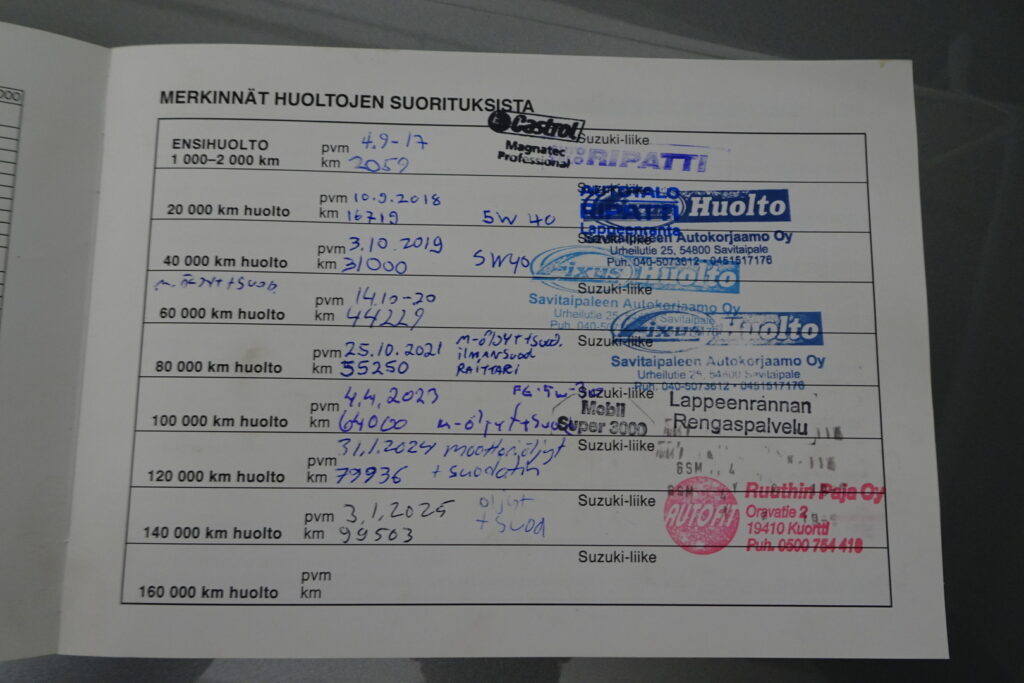 000
MERKINNÄT HUOLTOJEN SUORITUKSISTA
Castrol
Magnatec
Professional
ENSIHUOLTO
1 000–2 000 km
pvm 4.9-17
km 2059
Suzuki-liike
RIPATTI
20 000 km huolto
pvm 10.9.2018
km 16719
5W40
Suzuki-liike
AUTOTALO
RIPATTI
Lappeenranta
Huolto
Savitaipaleen Autokorjaamo Oy
Urheilutie 25, 54800 Savitaipale
Puh. 040-5073612 • 0451517176
40 000 km huolto
pvm 3.10.2019
km 31000
5W40
Fixus Huolto
Savitaipaleen Autokorjaamo Oy
Urheilutie 25
Puh. 040-50
60 000 km huolto
pvm 14.10-20
km 44229
Suzuki-liike
Fixus Huolto
Savitaipaleen Autokorjaamo Oy
Urheilutie 25, 54800 Savitaipale
Puh. 040-5073612 • 0451517176
80 000 km huolto
pvm 25.10.2021
km 55250
m-öljyt+suod.
ilmansuod
RAITTARI
Suzuki-liike
100 000 km huolto
pvm 4.4.2023
km 64000 m-öljyt+suod
Suzuki-liike
Mobil
Super 3000
Lappeenrannan
Rengaspalvelu
120 000 km huolto
pvm 31.1.2024 moottoriöljyt
km 79936 + suodatin
Suzuki-liike
GSM
140 000 km huolto
pvm 3.1.2025
km 99503
öljyt
+ suod
Suzuki-liike
AUTOFIT
Ruuthin Paja Oy
Oravatie 2
19410 Kuortti
Puh. 0500 754 418
160 000 km huolto
pvm
km
Suzuki-liike